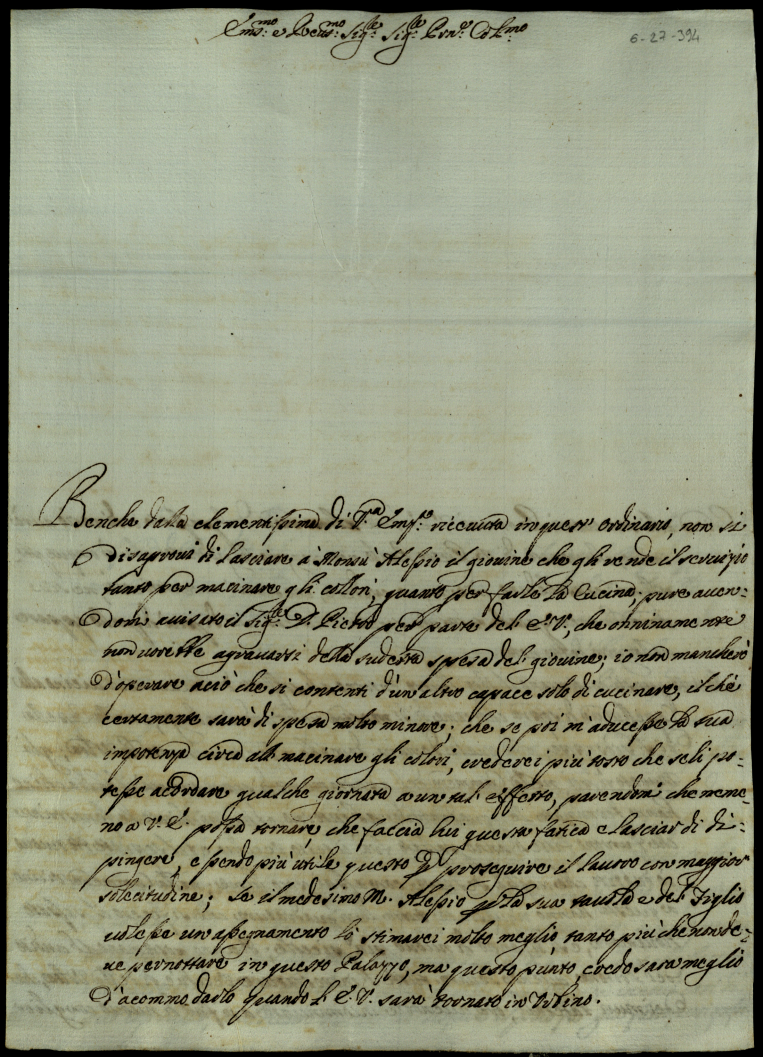 Em.mo e Rev.mo Sig.re Sig.re Prn'e Col.mo
6-27-394
Benche dalla clementissima di V.a Em.a riceuuta in quest' ordinario, non si
disaproui di lasciare à Monsù Alessio il giouine che gli rende il seruizio
tanto per macinare gli collori, quanto per farle la Cucina; pure auen-
domi auisato il Sig.re D. Pietro per parte del' E. V., che onninamente
non uorebbe agrauarsi della sudetta spesa del giouine; io non mancherò
d'operare aciò che si contenti d'un altro capace solo di cucinare, il ché
certamente sarà di spesa molto minore; che se poi m'aducesse la sua
impotenza circa all macinare gli colori, crederei più tosto che seli po-
tesse acordare qualche giornata a un tal' effetto, parendomi che neme-
no a V. E. possa tornare, che faccia lui questa fatica e lasciar di di-
pingere, essendo più utile questo p proseguire il lauoro con maggior
solecitudine; Se il medesimo M. Alessio p la sua tauola e del Figlio
uolesse un assegnamento lo stimarei molto meglio tanto più che non de-
ue pernottare in questo Palazzo, ma questo punto credo sara meglio
d'acommodarlo quando l' E. V. sarà tornato in Urbino.